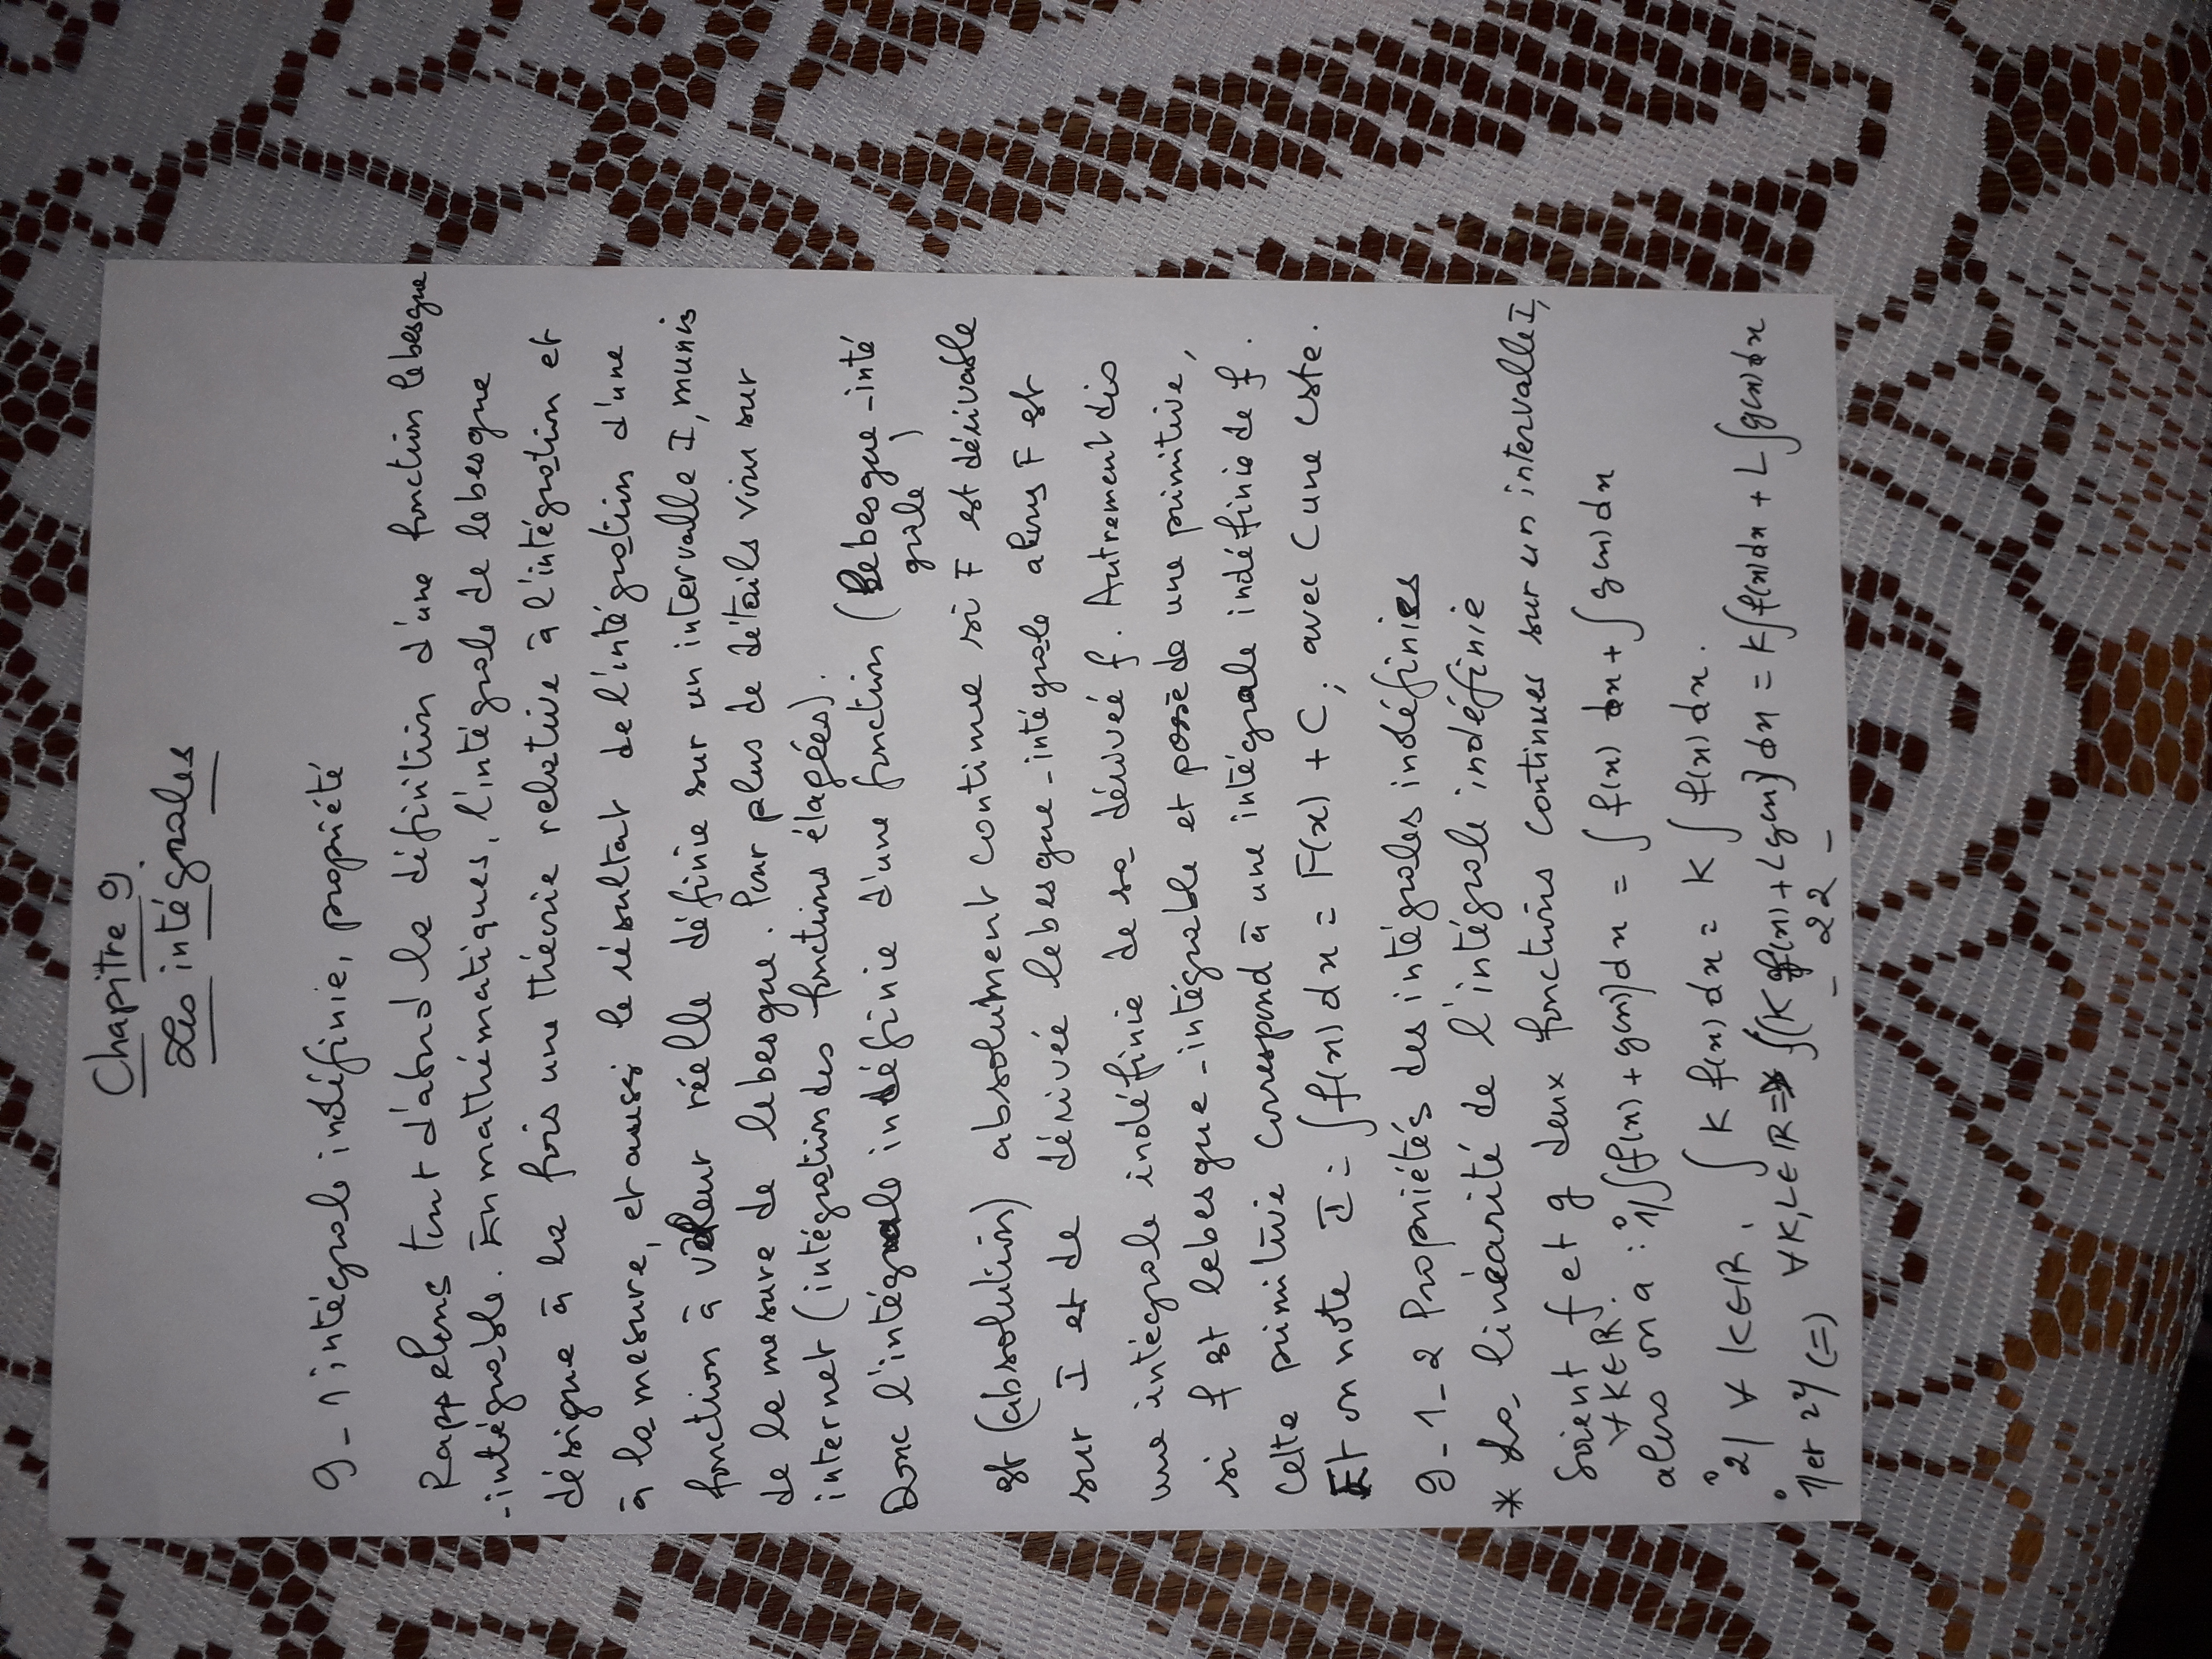 Chapitre 9.
Les intégrales
9-1 intégrale indéfinie, propriété
Rappelons tout d'abord la définition d'une fonction lebesgue
-intégrable. En mathématiques, l'intégrale de lebesgue
désigne à la fois une théorie relative à l'intégration et
à la mesure, et aussi le résultat de l'intégration d'une
fonction à valeur réelle définie sur un intervalle I, munis
de la mesure de lebesgue. Pour plus de détails voir sur
internet (intégration des fonctions élagées).
Donc l'intégrale indéfinie d'une fonction (Lebesgue-inté
grale)
est (absolution) absolument continue si F est dérivable
sur I et de dérivée lebesgue-intégrale alors F est
une intégrale indéfinie de sa dérivée f. Autrement dis
si f est lebesgue-intégrable et possède une primitive,
Cette primitive correspond à une intégrale indéfinie de f.
Et on note I = ∫ f(x) dx = F(x) + C ; avec C une cste.
9-1-2 Propriétés des intégrales indéfinies
* La linéarité de l'intégrale indéfinie
Soient f et g deux fonctions continues sur un intervalle I,
∀ K∈ℝ.
alors on a : 1°/ ∫(f(x) + g(x))dx = ∫ f(x) dx + ∫ g(x) dx
2°/ ∀ K∈ℝ. ∫ K f(x) dx = K ∫ f(x) dx.
1°/ et 2°/ (=) ∀ K, L ∈ ℝ => ∫(K f(x) + L g(x)) dx = K∫ f(x) dx + L ∫ g(x) dx
- 22 -